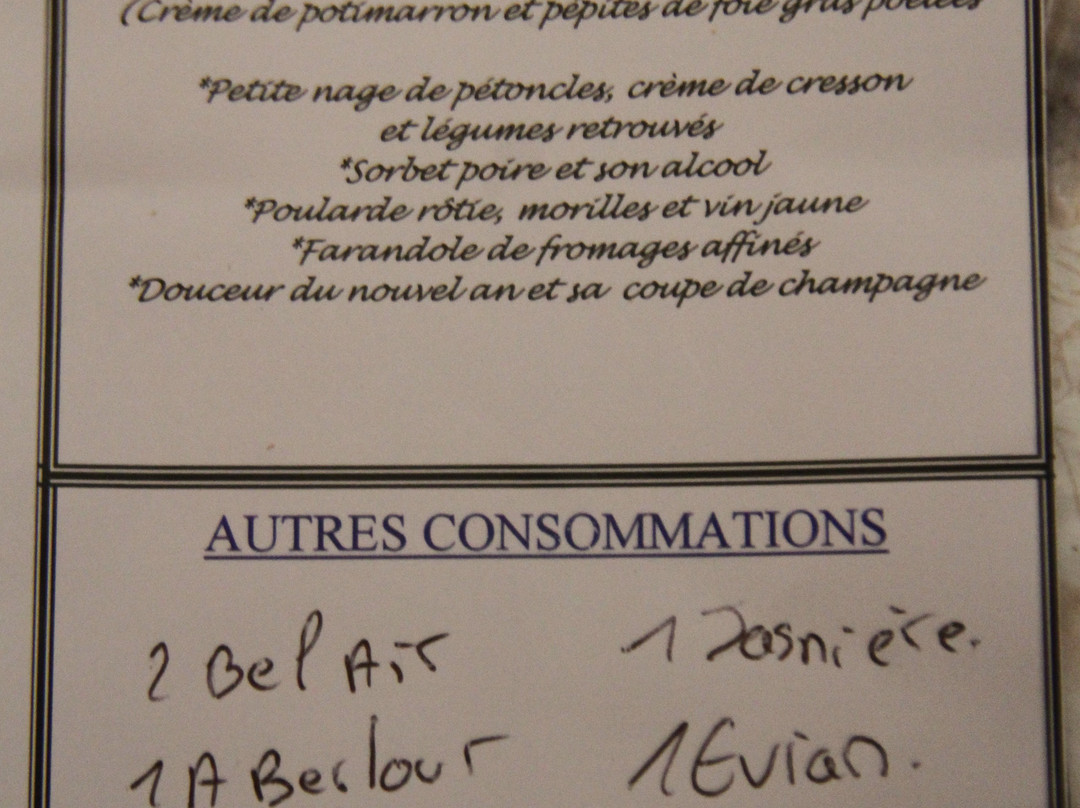 (Crème de potimarron et pépites de foie gras poêlées
*Petite nage de pétoncles, crème de cresson
et légumes retrouvés
*Sorbet poire et son alcool
*Poularde rôtie, morilles et vin jaune
*Farandole de fromages affinés
*Douceur du nouvel an et sa coupe de champagne
AUTRES CONSOMMATIONS
2 Bel Air 1 Jasnière.
1 A Berlour 1 Evian.